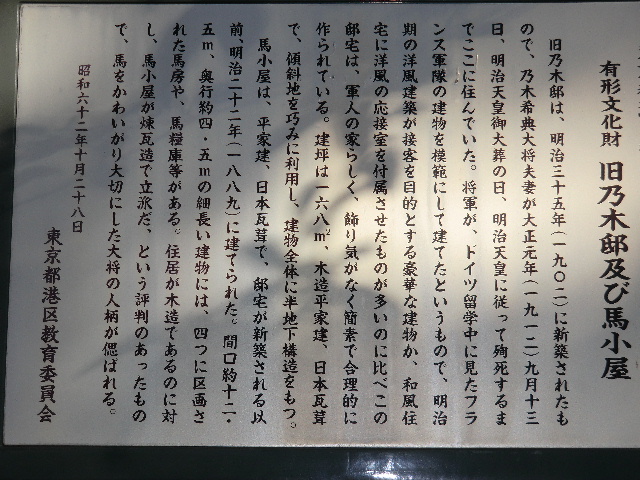 有形文化財 旧乃木邸及び馬小屋
旧乃木邸は、明治三十五年（一九〇二）に新築されたも
ので、乃木希典大将夫妻が大正元年（一九一二）九月十三
日、明治天皇御大葬の日、明治天皇に従って殉死するま
でここに住んでいた。将軍が、ドイツ留学中に見たフラ
ンス軍隊の建物を模範にして建てたというもので、明治
期の洋風建築が接客を目的とする豪華な建物か、和風住
宅に洋風の応接室を付属させたものが多いのに比べこの
邸宅は、軍人の家らしく、飾り気がなく簡素で合理的に
作られている。建坪は一六八㎡、木造平家建、日本瓦葺
で、傾斜地を巧みに利用し、建物全体に半地下構造をもつ。
馬小屋は、平家建、日本瓦葺で、邸宅が新築される以
前、明治二十二年（一八八九）に建てられた。間口約十二・
五m、奥行約四・五mの細長い建物には、四つに区画さ
れた馬房や、馬糧庫等がある。住居が木造であるのに対
し、馬小屋が煉瓦造で立派だ、という評判のあったもの
で、馬をかわいがり大切にした大将の人柄が偲ばれる。
昭和六十二年十月二十八日
東京都港区教育委員会